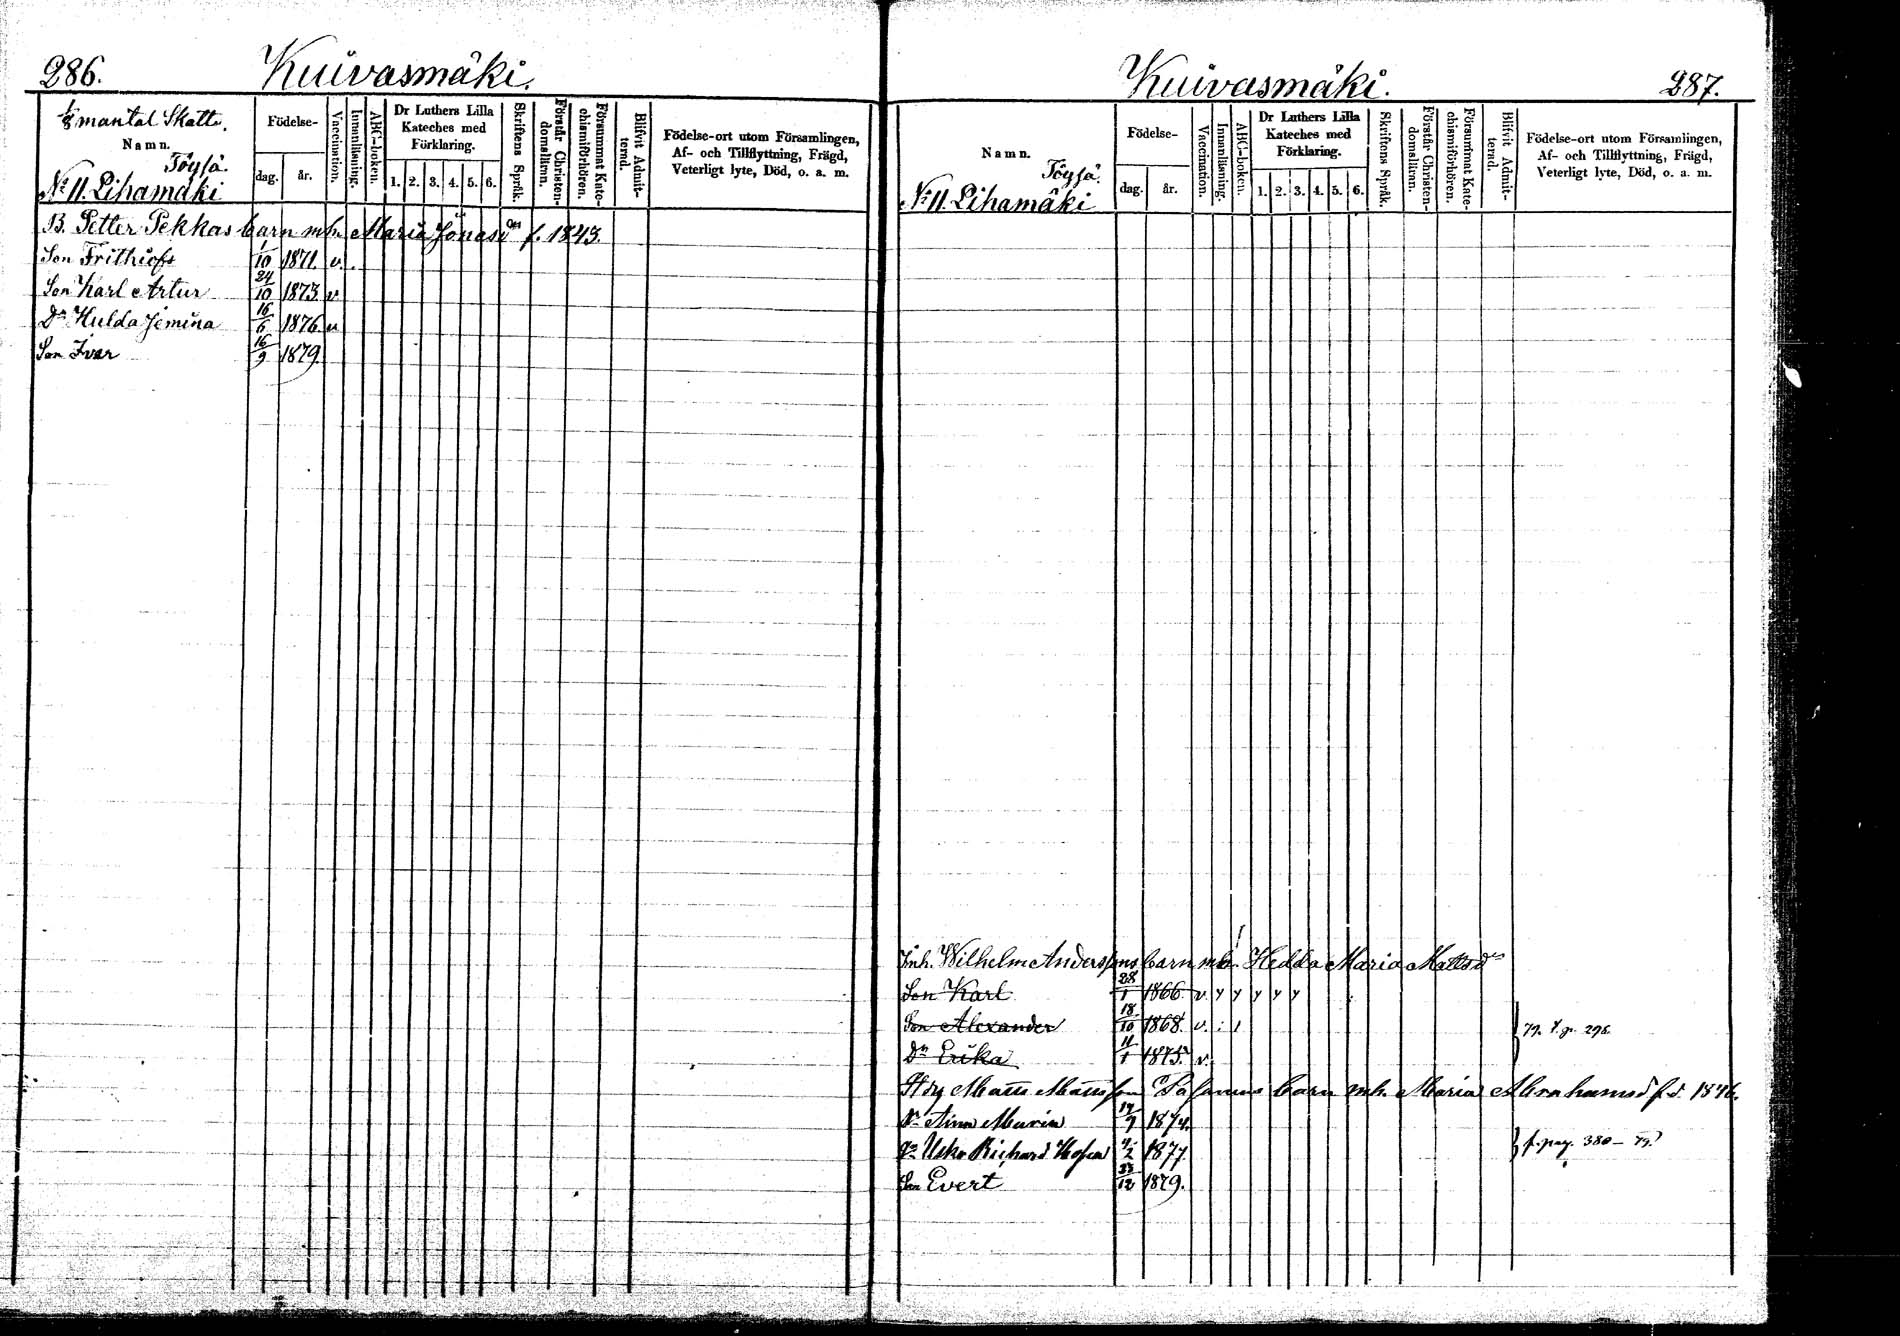 286.
Kuivasmäki.
1/8 mantal Skatte.
Namn.
Töysä.
No 11. Lihamäki
Födelse-
dag.
år.
Vaccination.
Innanläsning.
ABC-boken.
Dr Luthers Lilla
Kateches med
Förklaring.
1. 2. 3. 4. 5. 6.
Skriftens Språk.
Förstår Christen-
domslänn.
Försummat Kate-
chismiförhören.
Blifvit Admit-
terad.
Födelse-ort utom Församlingen,
Af- och Tillflyttning, Frägd,
Veterligt lyte, Död, o. a. m.
B. Petter Pekkas barn mh. Maria Jonasdr f. 1843.
Son Frithiof 1/10 1871. v.
Son Karl Artur 24/10 1873 v
Dr Hulda Jemina 16/6 1876 v
Son Ivar 16/9 1879.
Kuivasmäki.
287.
Namn.
Töysä.
No 11. Lihamäki
Födelse-
dag.
år.
Vaccination.
Innanläsning.
ABC-boken.
Dr Luthers Lilla
Kateches med
Förklaring.
1. 2. 3. 4. 5. 6.
Skriftens Språk.
Förstår Christen-
domslänn.
Försummat Kate-
chismiförhören.
Blifvit Admit-
terad.
Födelse-ort utom Församlingen,
Af- och Tillflyttning, Frägd,
Veterligt lyte, Död, o. a. m.
Inh. Wilhelm Anderssons barn mh. Hedda Maria Mattsdr
Son Karl 28/1 1866 v. y y y y y
Son Alexander 18/10 1868. v. 79. 296.
Dr Erika 11/1 1875. v.
Matts Mattsson barn mh. Maria Abrahamsd f.d. 1846.
Dr Aina Maria 14/9 1874.
Richard 1877. p. pag. 380 – 79.
Son Evert 23/12 1879.